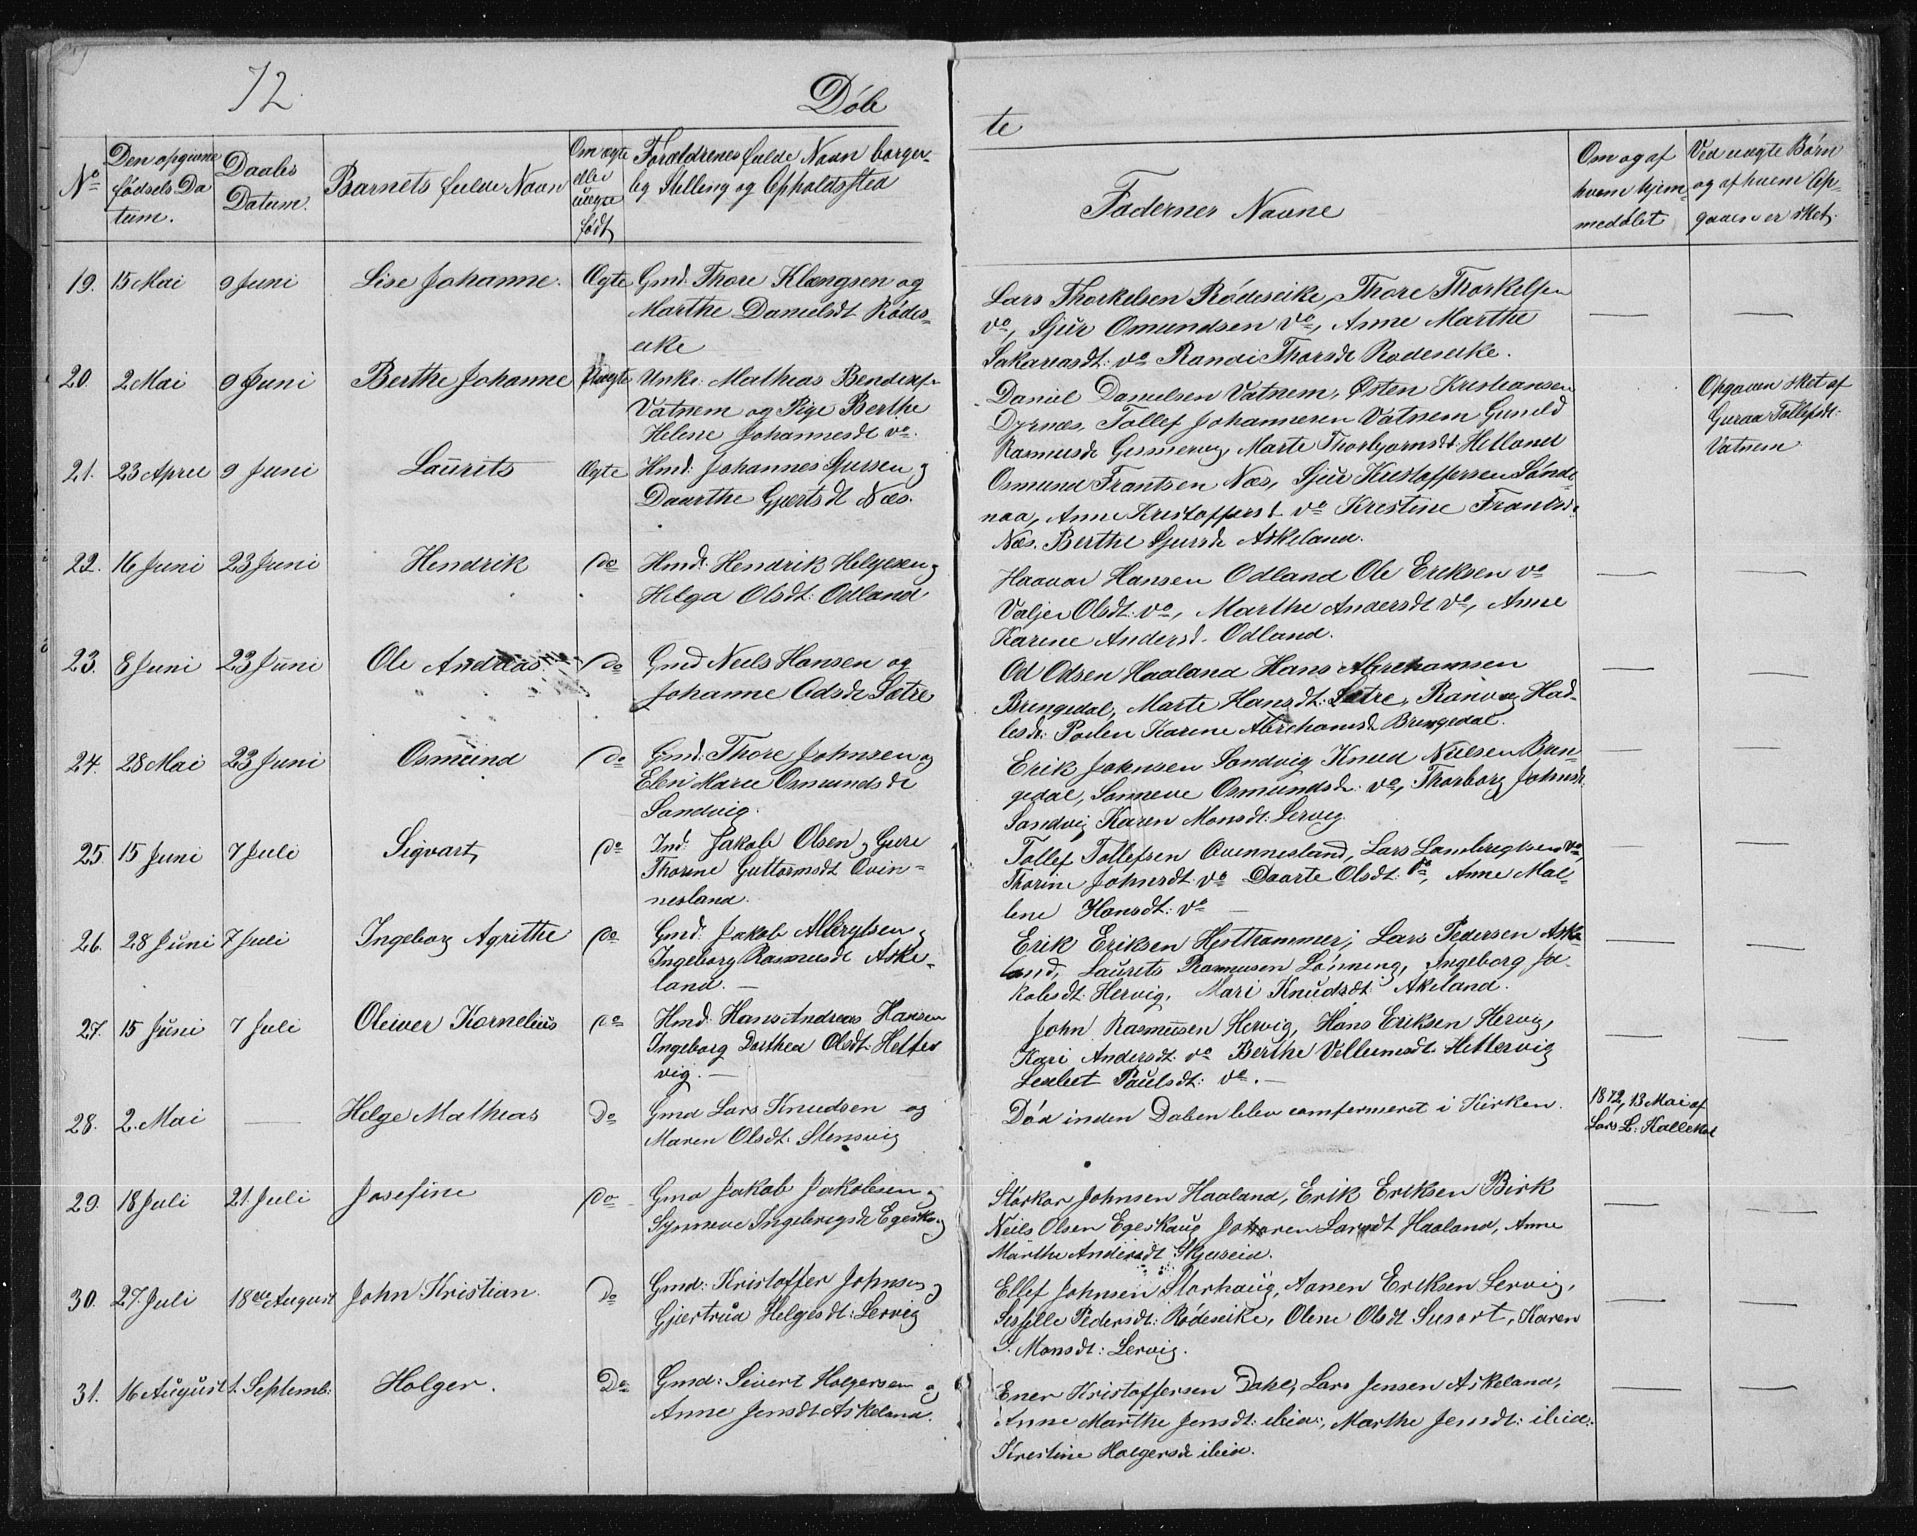 72
Døb
te
No
Den opgivne
fødsels Da
tum.
Daabs
Datum.
Barnets fulde Navn
Om ægte
eller
uægte
født
Forældrenes fulde Navn borger-
lig Stilling og Opholdssted
Faderner Navne
Om og af
hvem hjem-
medøbt
Ved uægte Børn
og af hvem Op-
gaven er sket.
19. 15 Mai 9 Juni Lise Johanne. Ægte Gmd: Thore Klængsen og
Marthe Danielsdt Rødes-
eike
Lars Thorkelsen Rødeseike, Thore Thorkelsen
do, Sjur Osmundsen do, Anne Marthe
Sakariasdt: do Randi Thorsdt Rødeseike.
20. 2 Mai 9 Juni Berthe Johanne Uægte Unkr: Mathias Bendixs-
Vatnem og Pige Berthe
Helene Johannesdt do.
Daniel Danielsen Vatnem, Østen Kristiansen
Dyrnæs, Tollef Johannesen Vatnem Gunild
Rasmusdt Gismervig, Marte Thorbjørnsdt: Hetland
Opgaven sket af
Guraa Tollefsdt:
Vatnem
21. 23 April 9 Juni Laurits Ægte Hmd: Johannes Sjursen og
Daarthe Gjertsdt Næs.
Osmund Frantsen Næs, Sjur Kristoffersen Sønde-
naa, Anne Kristoffersdt do Kristine Frantsdt:
Næs. Berthe Sjursdt Askeland.
22. 16 Juni 23 Juni Hendrik do Hmd: Hendrik Helgesen og
Helga Olsdt: Odland
Haavar Hansen Odland Ole Eriksen do
Valjer Olsdt: do, Marthe Andersdt do, Anne
Karine Andersd. Odland.
23. 8 Juni 23 Juni Ole Andreas do Gmd Neils Hansen og
Johanne Odsdt Sætre
Od Odsen Haaland Hans Abrehamsen
Bringedal, Marte Hansdt: Sætre, Ranveig Had-
lesdt: Poilen Karine Abrehamsdt Bringedal.
24. 28 Mai 23 Juni Osmund do Gmd: Thore Johnsen og
Elen Marie Osmundsdt
Sandvig.
Erik Johnsen Sandvig Knud Nielsen Brin-
gedal, Sønneve Osmundsdt: do, Thorborg Johnsdt
Sandvig Karen Monsdt: Lervig.
25. 15 Juni 7 Juli Sigvart do Ind: Jakob Olsen og Gure
Thorine Guttormsdt Ovin-
nesland.
Tollef Tollefsen Ovennesland, Lars Lambregtsen do,
Thorine Johnsdt: do Daarte Olsdt: do, Anne Mal-
lene Hansdt: do
26. 28 Juni 7 Juli Ingeborg Agrithe do Gmd: Jakob Albrytsen og
Ingeborg Rasmusdt Aske-
land.
Erik Eriksen Hesthammer, Lars Pedersen Aske-
land, Laurits Rasmusen Lønning, Ingeborg Ja-
kobsdt: Hervig, Mari Knudsdt: Akeland.
27. 15 Juni 7 Juli Oleiver Kornelius do Hmd: Hans Andreas Hansen
Ingeborg Dorthea Olsdt: Hetter
vig.
John Rasmusen Hervig, Hans Eriksen Hervig,
Kari Andersdt do Berthe Vellumsdt: Hettervig
Lisebet Paulsdt: do.
28. 2. Mai Helge Mathias Do Gmd Lars Knudsen og
Maren Olsdt: Stensvig
Død inden Daben blev comfermeret i Kirken.
1872, 13 Mai af
Lars L: Kallekot
29. 18 Juli 21. Juli Josefine do Gmd Jakob Jakobsen og
Synneve Ingebrigsdt Egeskog
Størkor Johnsen Haaland, Erik Eriksen Birk
Neils Olsen Egeskaug Johanen Larsdt Haaland, Anne
Marthe Andersdt Skjeseid.
30. 27. Juli 18de August John Kristian. Do Gmd: Kristoffer Johnsen og
Gjertrud Helgesdt: Lervig
Ellef Johnsen Storhaug, Aanen Eriksen Lervig,
Sissille Pedersdt: Rødeseike, Oline Olsdt Susort, Karen
S. Monsdt: Lervig.
31. 16 August 1. Septemb: Holger. Do Gmd: Seivert Holgersen og
Anne Jensdt Askeland.
Ener Kristoffersen Dahl, Lars Jensen Askeland,
Anne Marthe Jensdt: ibid:, Marthe Jensdt: ibid:
Kristine Holgersdt ibid.